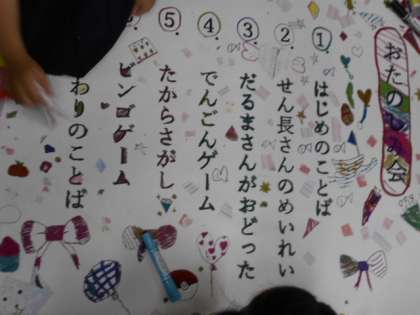 おたのしみ会
①はじめのことば
②せん長さんのめいれい
③だるまさんがおどった
④でんごんゲーム
⑤たからさがし
ビンゴゲーム
わりのことば